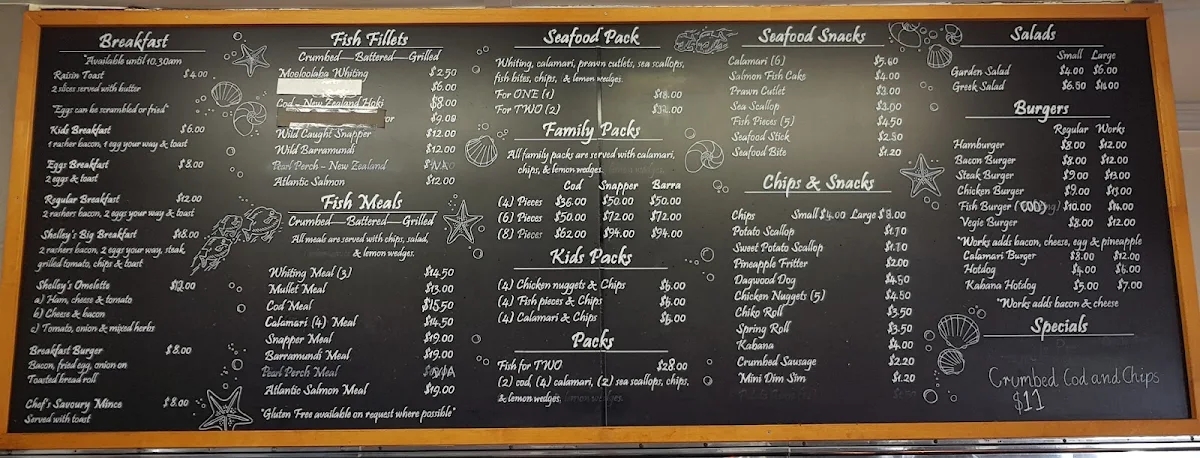 Breakfast
"Available until 10.30am
Raisin Toast $4.00
2 slices served with butter
"Eggs can be scrambled or fried"
Kids Breakfast $6.00
1 rasher bacon, 1 egg your way & toast
Eggs Breakfast $8.00
2 eggs & toast
Regular Breakfast $12.00
2 rashers bacon, 2 eggs your way & toast
Shelley's Big Breakfast $18.00
2 rashers bacon, 2 eggs your way, steak,
grilled tomato, chips & toast
Shelley's Omelette
a) Ham, cheese & tomato
b) Cheese & bacon
c) Tomato, onion & mixed herbs
Breakfast Burger $8.00
Bacon, fried egg, onion on
Toasted bread roll
Chef's Savoury Mince $8.00
Served with toast
Fish Fillets
Crumbed—Battered—Grilled
Mooloolaba Whiting $2.50
$6.00
Cod - New Zealand Hoki $8.00
or $9.00
Wild Caught Snapper $12.00
Wild Barramundi $12.00
Pearl Perch - New Zealand N/A
Atlantic Salmon $12.00
Fish Meals
Crumbed—Battered—Grilled
All meals are served with chips, salad,
& lemon wedges.
Whiting Meal (3) $14.50
Mullet Meal $13.00
Cod Meal $15.50
Calamari (4) Meal $14.50
Snapper Meal $19.00
Barramundi Meal $19.00
Pearl Perch Meal N/A
Atlantic Salmon Meal $19.00
"Gluten Free available on request where possible"
Seafood Pack
Whiting, calamari, prawn cutlets, sea scallops,
fish bites, chips, & lemon wedges.
For ONE (1) $18.00
For TWO (2)
Family Packs
All family packs are served with calamari,
chips, & lemon wedges.
Cod Snapper Barra
(4) Pieces $36.00 $50.00 $50.00
(6) Pieces $50.00 $72.00 $72.00
(8) Pieces $62.00 $94.00 $94.00
Kids Packs
(4) Chicken nuggets & Chips $6.00
(4) Fish pieces & Chips $6.00
(4) Calamari & Chips $6.00
Packs
Fish for TWO $28.00
(2) cod, (4) calamari, (2) sea scallops, chips,
& lemon wedges.
Seafood Snacks
Calamari (6) $5.60
Salmon Fish Cake $4.00
Prawn Cutlet $3.00
Sea Scallop $3.00
Fish Pieces (5) $4.50
Seafood Stick $2.50
Seafood Bite $1.20
Chips & Snacks
Chips Small $4.00 Large $8.00
Potato Scallop $1.70
Sweet Potato Scallop $1.70
Pineapple Fritter $2.00
Dagwood Dog $4.50
Chicken Nuggets (5) $4.50
Chiko Roll $3.50
Spring Roll $3.50
Kabana $4.00
Crumbed Sausage $2.20
Mini Dim Sim $1.20
Salads
Small Large
Garden Salad $4.00 $6.00
Greek Salad $6.50
Burgers
Regular Works
Hamburger $8.00 $12.00
Bacon Burger $8.00 $12.00
Steak Burger $9.00 $13.00
Chicken Burger $9.00 $13.00
Fish Burger (COD) $10.00 $14.00
Vegie Burger $8.00 $12.00
"Works adds bacon, cheese, egg & pineapple
Calamari Burger $8.00 $12.00
Hotdog $4.00 $6.00
Kabana Hotdog $5.00 $7.00
"Works adds bacon & cheese
Specials
Crumbed Cod and Chips
$11